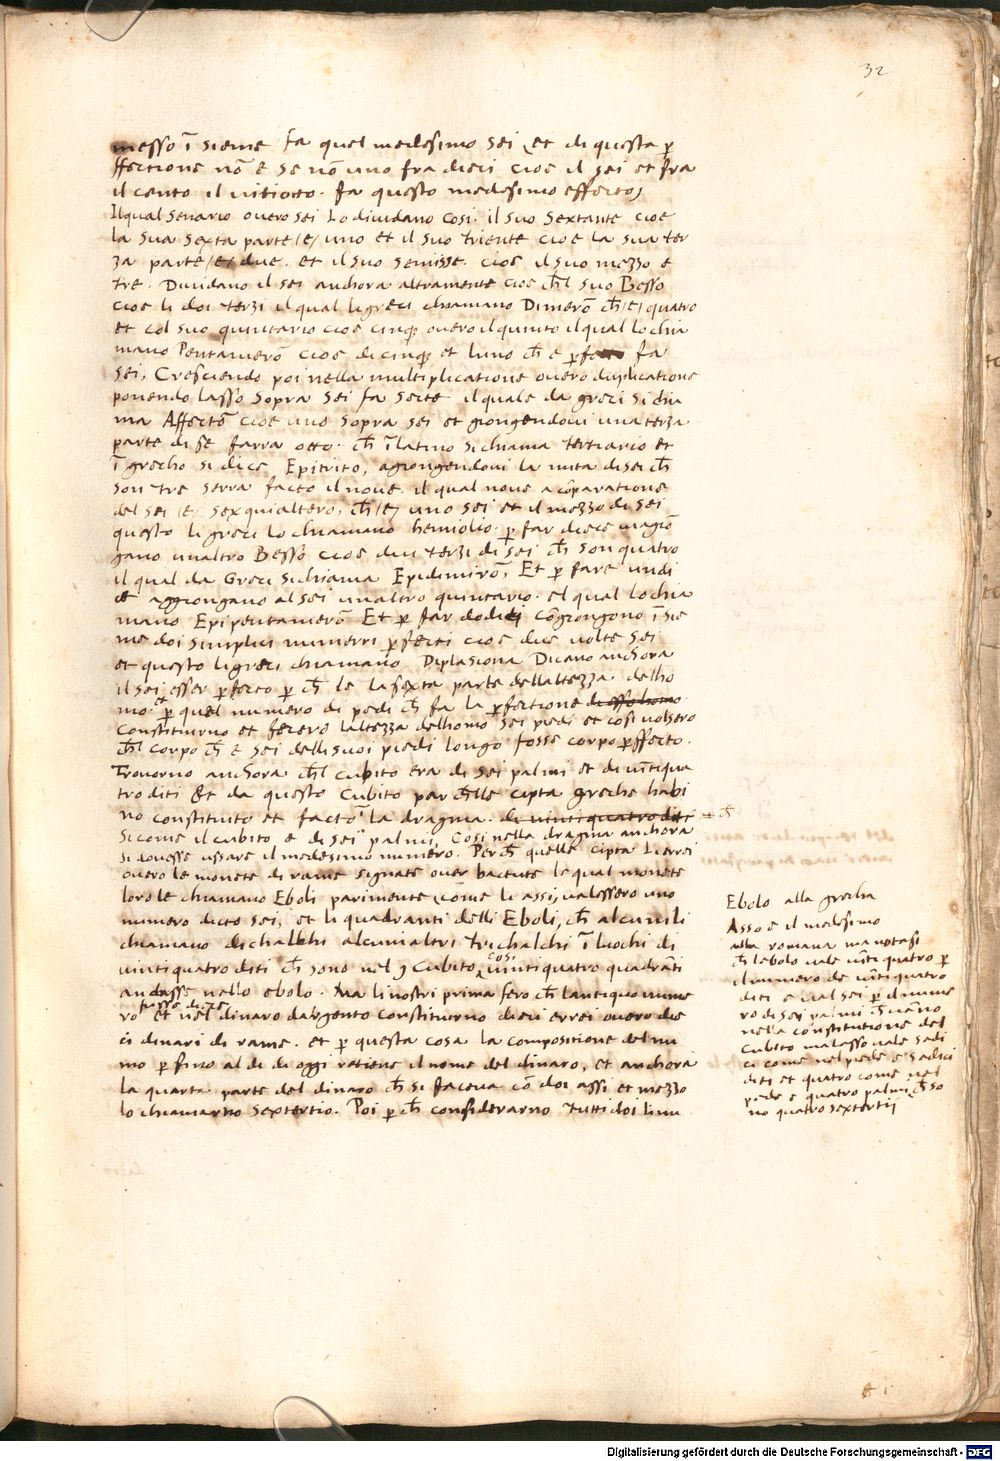 32
messo ī sieme fa quel medesimo sei et di questa p
ffectione nō e se nō uno fra dieci cioe il sei et fra
il cento il vitiotto. fa questo medesimo effecto,
Il qual senario overo sei Lo dividano cosi. il suo sextante cioe
la sua sexta parte (e) uno et il suo triente cioe la sua ter
za parte (e) due. et il suo semisse. cioe il suo mezzo e
tre. Dividano il sei anchora altramente cioe ch̄l suo Besso
cioe li doi terzi il qual li greci chiamano Dimerō ch̄ (e) quatro
et col suo quintario cioe cinq overo il quinto il qual lo chia
mano Pentamerō cioe di cinq et luno ch̄ e pfato fa
sei, Crescendo poi nella multiplicatione overo duplicatione
ponendo lasso sopra sei fa sette il quale da greci si chia
ma Affectō cioe uno sopra sei et giongendovi una terza
parte di se farra otto. ch̄ ī latino si chiama tertiario et
ī grecho si dice Epitrito, agiongendovi la mita di sei ch̄
son tre serra facto il nove. il qual nove a cōparatione
del sei (e) sexquialtero, ch̄ (e) uno sei et il mezzo di sei
questo li greci lo chiamano hemiolio. p far diece vi agiō
gano unaltro Besso cioe dui terzi di sei ch̄ son quatro
il qual da Greci si chiama Epidimirō, Et p fare undi
ce aggiongano al sei unaltro quintario. el qual lo chia
mano Epi pentamerō Et p far dodici cōgiongono ī sie
me doi simplici numerri pfecti cioe due volte sei
et questo li greci chiamano Diplasiona Dicano anchora
il sei esser pfecto p ch̄ le la sexta parte dellaltezza. dello
mo. et p quel numero di piedi ch̄ fa la pfectione di esso homo
Constiturno et fecero laltezza delhomo sei piedi et cosi volsero
ch̄l corpo ch̄ e sei delli suoi piedi longo fosse corpo pffecto.
Trovorno anchora ch̄l cubito era di sei palmi et di vīntiqua
tro diti Et da questo Cubito par ch̄lle cipta greche habi
no constituito et factō la dragma. di vinti quatro diti + ch̄
Si come il cubito e di sei palmi, Cosi nella dragma anchora
si dovesse ussare il medesimo numero. Perch̄ quelle cipta li errei
overo le monete di rame signate over battute le qual monete
loro le chiamano Eboli parimente, come li assi, valessero uno
numero dicto sei, et li quadranti delli Eboli, ch̄ alcuni li
chiamano dichalchi alcuni altri trichalchi ī luochi di
vintiquatro diti ch̄ sono nel Cubito, cosi vintiquatro quadrāti
andasse nello ebolo. Ma li nostri prima fero ch̄ lantiquo nume
ro fusse diece et nel dinaro dargento constiturno dieci errei overo die
ci dinari di rame. et p questa cosa la compositione del nu
mo p fino al di di oggi ratiene il nome del dinaro, et anchora
la quarta parte del dinaro ch̄ si faceva cō doi assi et mezzo
lo chiamarno sextertio. Poi p ch̄ considerarno tutti doi li nu
Ebolo alla grecha
Asso e il medesimo
alla romana ma notasi
ch̄ lebolo vale vīnti quatro p
il numero de vīnti quatro
diti e val sei p il nume
ro di sei palmi ch̄ vāno
nella constitutione del
Cubito ma lasso vale sadi
ci come nel piede e sadici
diti et quatro come nel
pede e quatro palmi, ch̄ so
no quatro sextertij
Digitalisierung gefördert durch die Deutsche Forschungsgemeinschaft - DFG